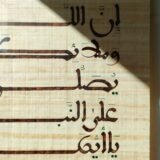 إِنَّ اللَّ
وملائك
يُصَلُّو
على النَّب
يا أيها